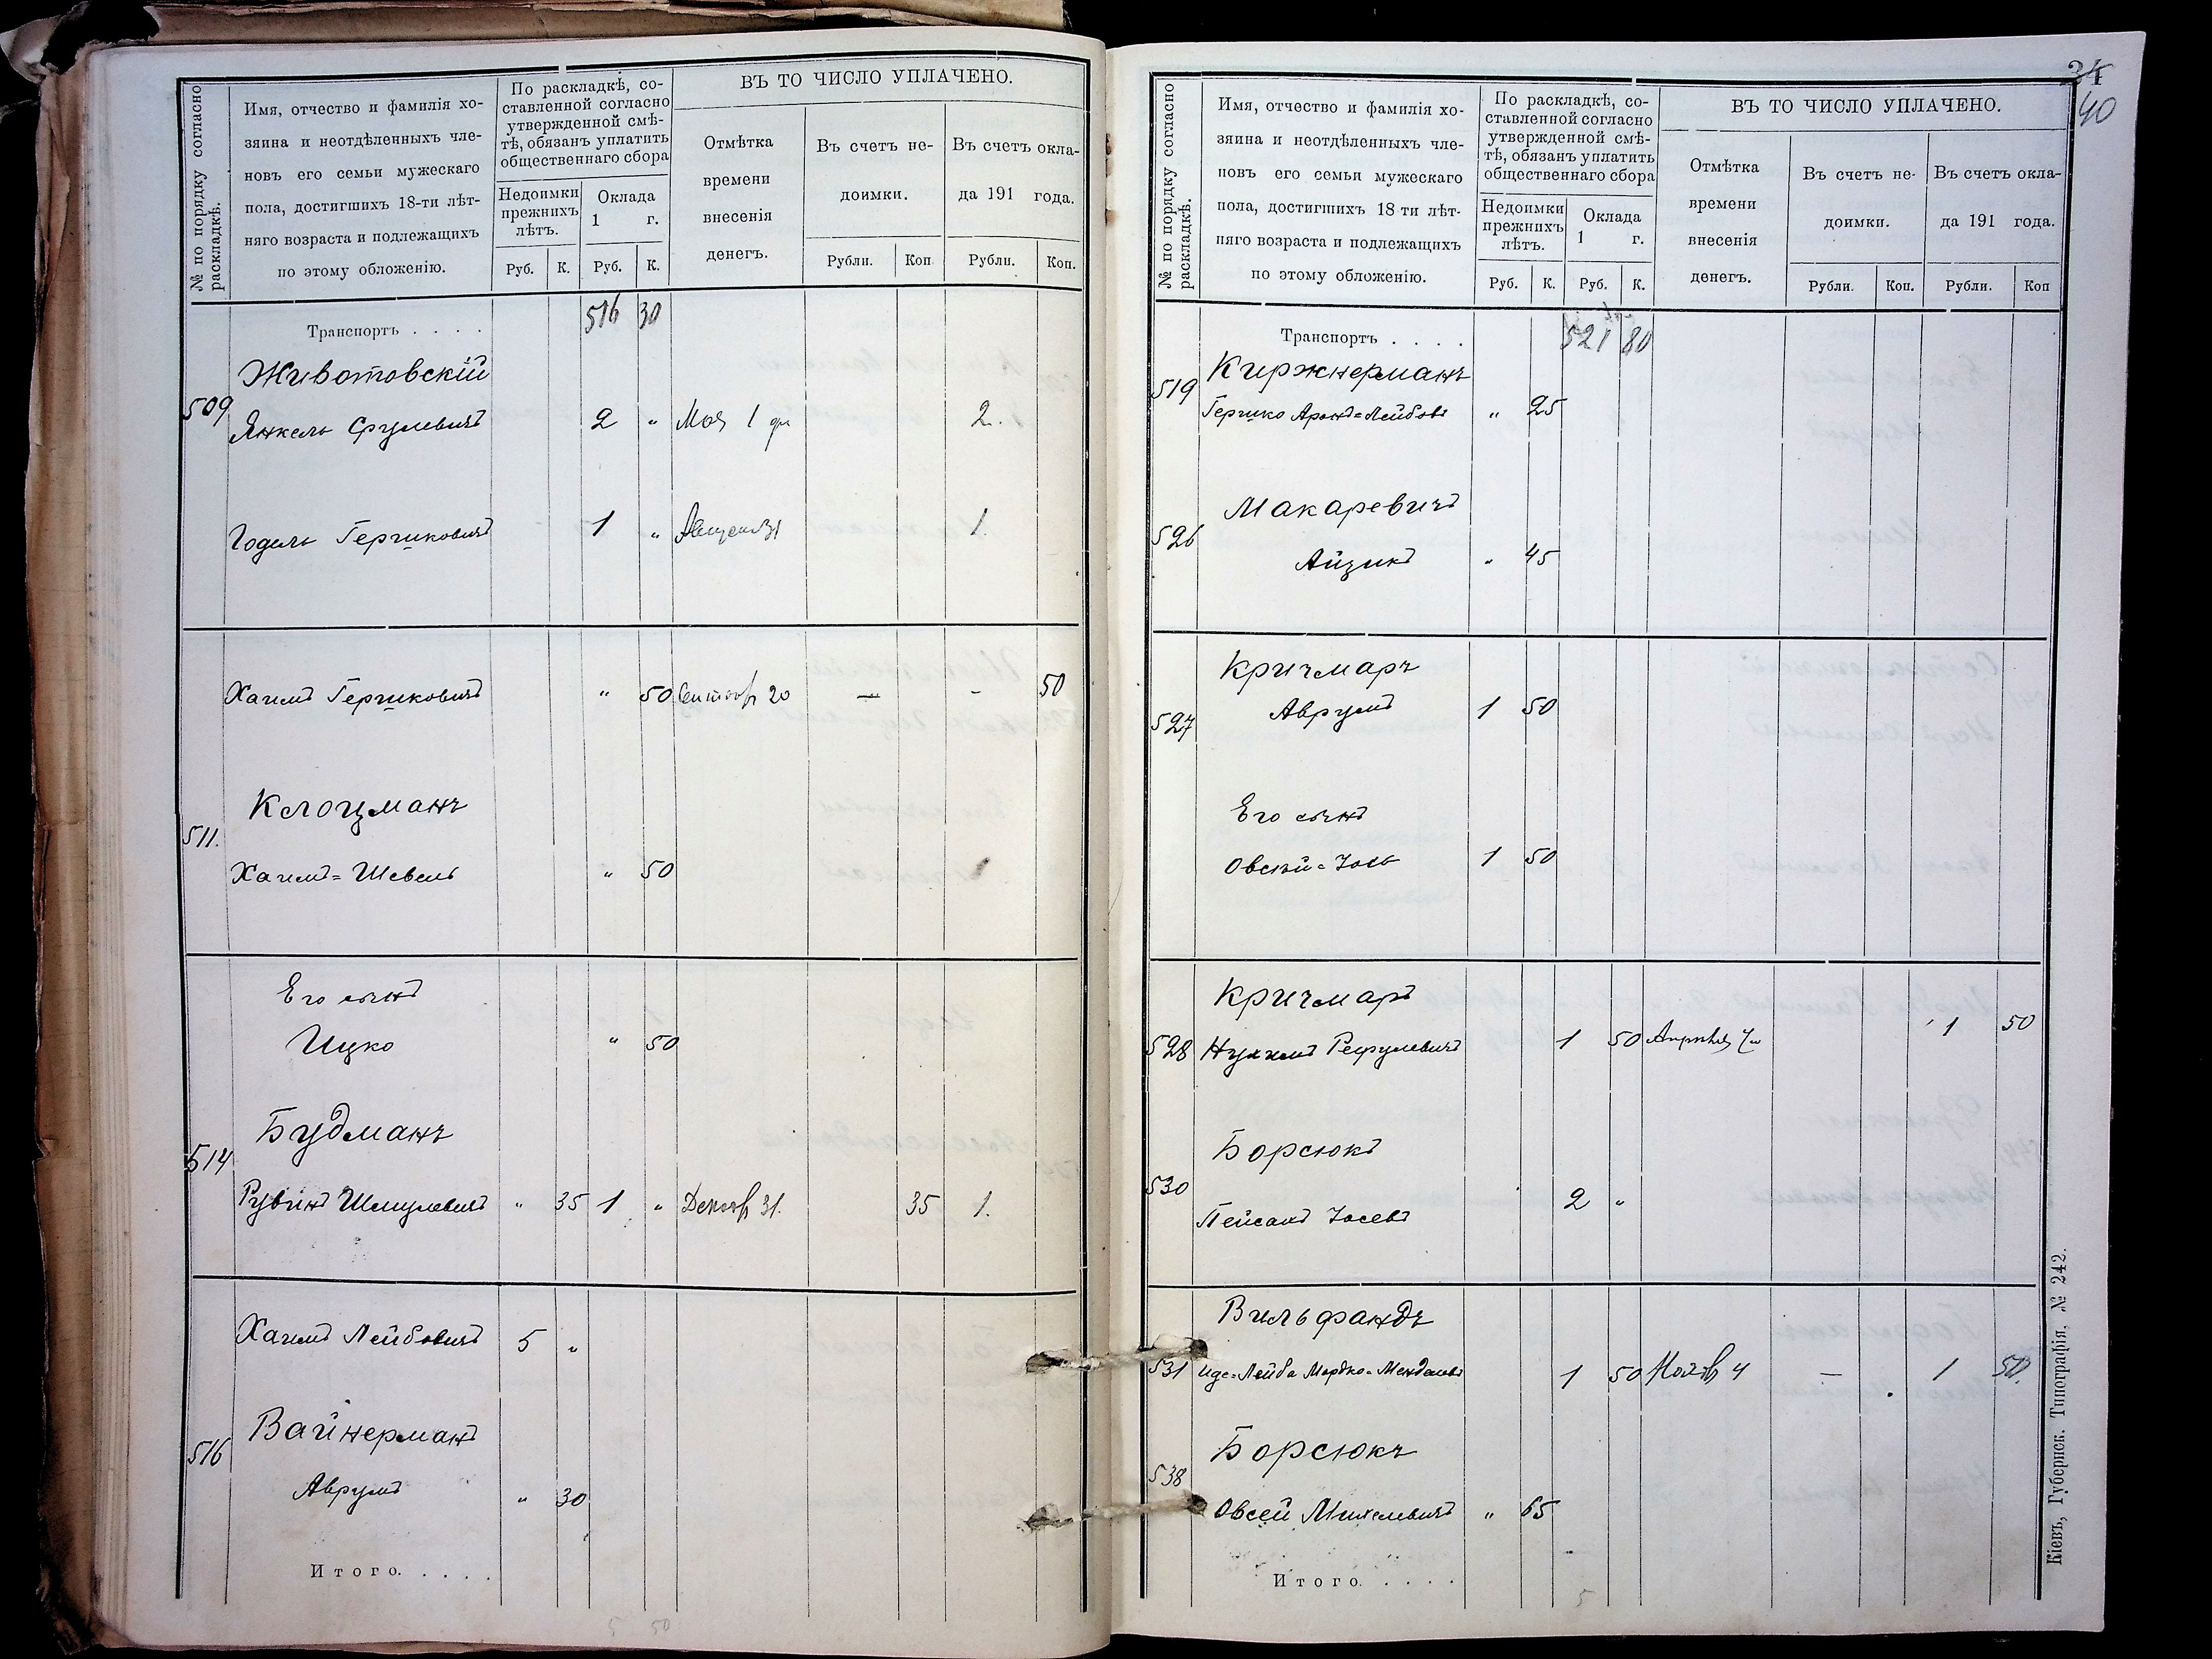 № по порядку согласно
раскладкѣ.
Имя, отчество и фамилія хо-
зяина и неотдѣленныхъ чле-
новъ его семьи мужескаго
пола, достигшихъ 18-ти лѣт-
няго возраста и подлежащихъ
по этому обложенію.
По раскладкѣ, со-
ставленной согласно
утвержденной смѣ-
тѣ, обязанъ уплатить
общественнаго сбора
Недоимки
прежнихъ
лѣтъ.
Оклада
1 г.
Руб. К. Руб. К.
ВЪ ТО ЧИСЛО УПЛАЧЕНО.
Отмѣтка
времени
внесенія
денегъ.
Въ счетъ не-
доимки.
Въ счетъ окла-
да 191 года.
Рубли. Коп Рубли. Коп.
Транспортъ . . . . 516 30
Животовскій
509 Янкель Срулевичъ 2 „ Мая 1 дн 2.
Годель Гершковичъ 1 „ 1.
Хаимъ Гершковичъ „ 50 Сентябр 20 — - 50
Клоцманъ
511. Хаимъ=Шевель „ 50
Его сынъ
Ицко „ 50
Будманъ
514 Рувинъ Шмулевичъ „ 35 1 „ Декабр 31. 35 1.
Хаимъ Лейбовичъ 5 „
Вайнерманъ
516 Аврумъ „ 30
Итого. . . . .
5 50
34
40
№ по порядку согласно
раскладкѣ.
Имя, отчество и фамилія хо-
зяина и неотдѣленныхъ чле-
новъ его семьи мужескаго
пола, достигшихъ 18 ти лѣт-
няго возраста и подлежащихъ
по этому обложенію.
По раскладкѣ, со-
ставленной согласно
утвержденной смѣ-
тѣ, обязанъ уплатить
общественнаго сбора
Недоимки
прежнихъ
лѣтъ.
Оклада
1 г.
Руб. К. Руб. К.
ВЪ ТО ЧИСЛО УПЛАЧЕНО.
Отмѣтка
времени
внесенія
денегъ.
Въ счетъ не-
доимки.
Въ счетъ окла-
да 191 года.
Рубли. Коп. Рубли. Коп
Транспортъ . . . . 521 80
Киржнерманъ
519 Гершко Аронъ=Лейбовъ „ 25
Макаревичъ
526 Айзикъ „ 45
Кричмаръ
527 Аврумъ 1 50
Его сынъ
Овсѣй=Іось 1 50
Кричмаръ
528 Нухимъ Рефулевичъ 1 50 Апрѣля 1 50
Борсюкъ
530 Пейсахъ Іосевъ 2 „
Вильфандъ
531 Иде=Лейба Мордко=Менделевъ 1 50 Ноябр 4 — 1 50
Борсюкъ
538 Овсей Михелевичъ „ 65
Итого. . . . .
5
Кіевъ, Губернск. Типографія. № 242.